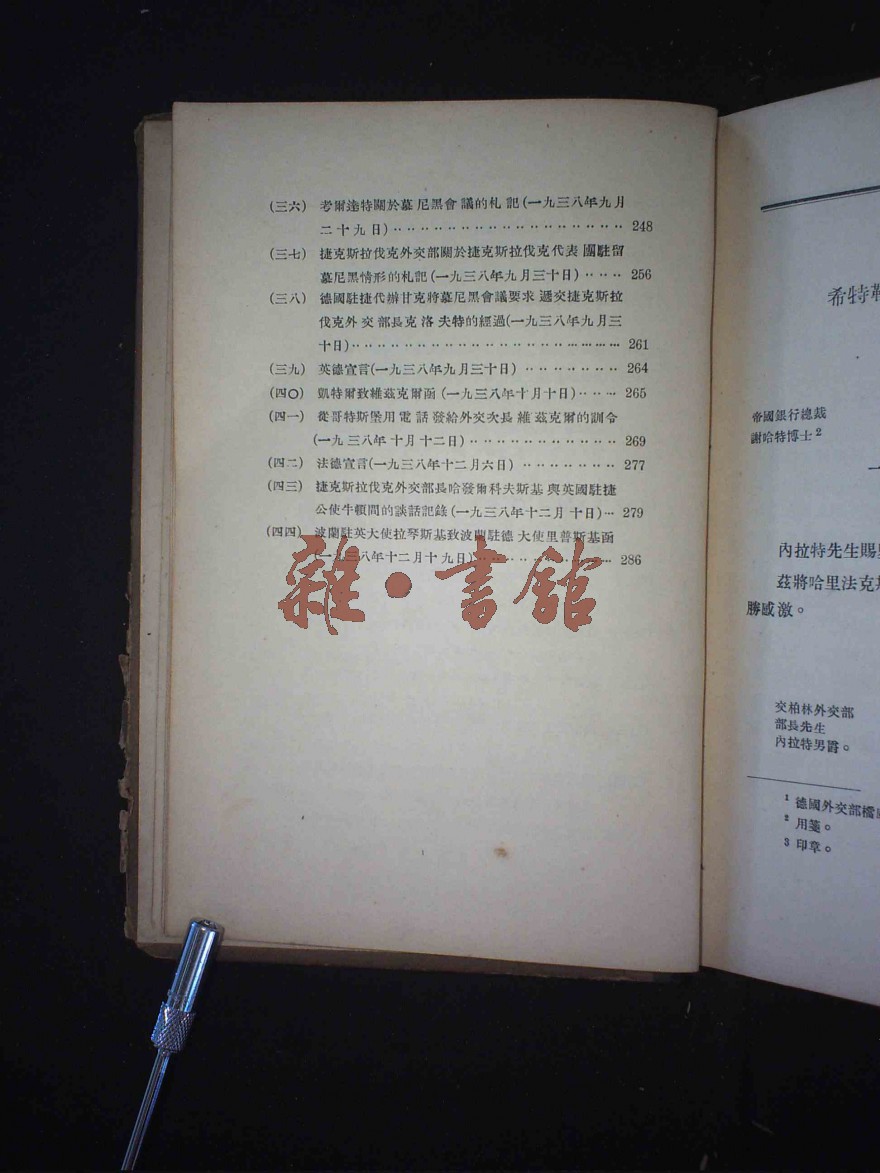 (三六) 考爾達特關於慕尼黑會議的札記(一九三八年九月
二十九日)‥‥‥‥‥‥‥‥‥‥‥‥‥‥‥‥‥ 248
(三七) 捷克斯拉伐克外交部關於捷克斯拉伐克代表團駐留
慕尼黑情形的札記(一九三八年九月三十日)‥‥‥ 256
(三八) 德國駐捷代辦甘克將慕尼黑會議要求遞交捷克斯拉
伐克外交部長克洛夫特的經過(一九三八年九月三
十日)‥‥‥‥‥‥‥‥‥‥‥‥‥‥‥‥‥‥‥ 261
(三九) 英德宣言(一九三八年九月三十日)‥‥‥‥‥‥‥ 264
(四〇) 凱特爾致維茲克爾函(一九三八年十月十日)‥‥‥ 265
(四一) 從哥特斯堡用電話發給外交次長維茲克爾的訓令
(一九三八年十月十二日)‥‥‥‥‥‥‥‥‥‥‥ 269
(四二) 法德宣言(一九三八年十二月六日)‥‥‥‥‥‥‥ 277
(四三) 捷克斯拉伐克外交部長哈發爾科夫斯基與英國駐捷
公使牛頓間的談話記錄(一九三八年十二月十日)‥ 279
(四四) 波蘭駐英大使拉琴斯基致波蘭駐德大使里普斯基函
(一九三八年十二月十九日)‥‥‥‥‥‥‥‥‥‥ 286
雜·書館
希特勒
帝國銀行總裁
謝哈特博士²
內拉特先生賜
茲將哈里法克
勝感激。
交柏林外交部
部長先生
內拉特男爵。
¹ 德國外交部檔
² 用箋。
³ 印章。